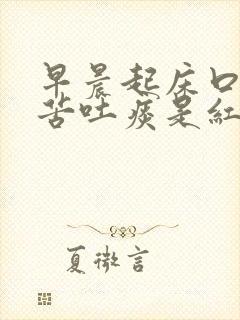 早晨起床口
苦吐痰是紅
夏微言